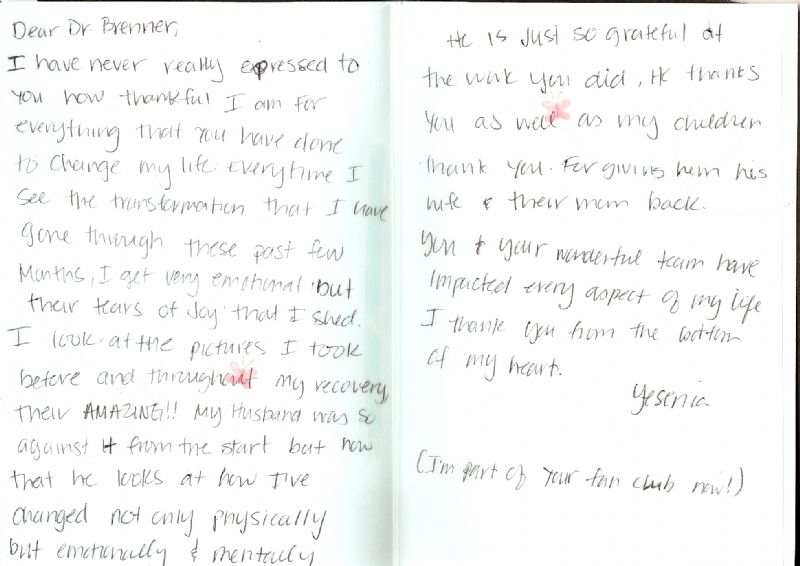 Dear Dr. Brenner,
I have never really expressed to
you how thankful I am for
everything that you have done
to change my life. Everytime I
see the transformation that I have
gone through these past few
months, I get very emotional but
their tears of Joy that I shed.
I look at the pictures I took
before and throughout my recovery,
their AMAZING!! My Husband was so
against it from the start but now
that he looks at how I've
changed not only physically
but emotionally & mentally
He is Just so grateful at
the work you did, He thanks
you as well as my children
thank you. For giving him his
wife & their mom back.
You & your wonderful team have
impacted every aspect of my life
I thank you from the bottom
of my heart.
Yesenia
(I'm part of your fan club now!)